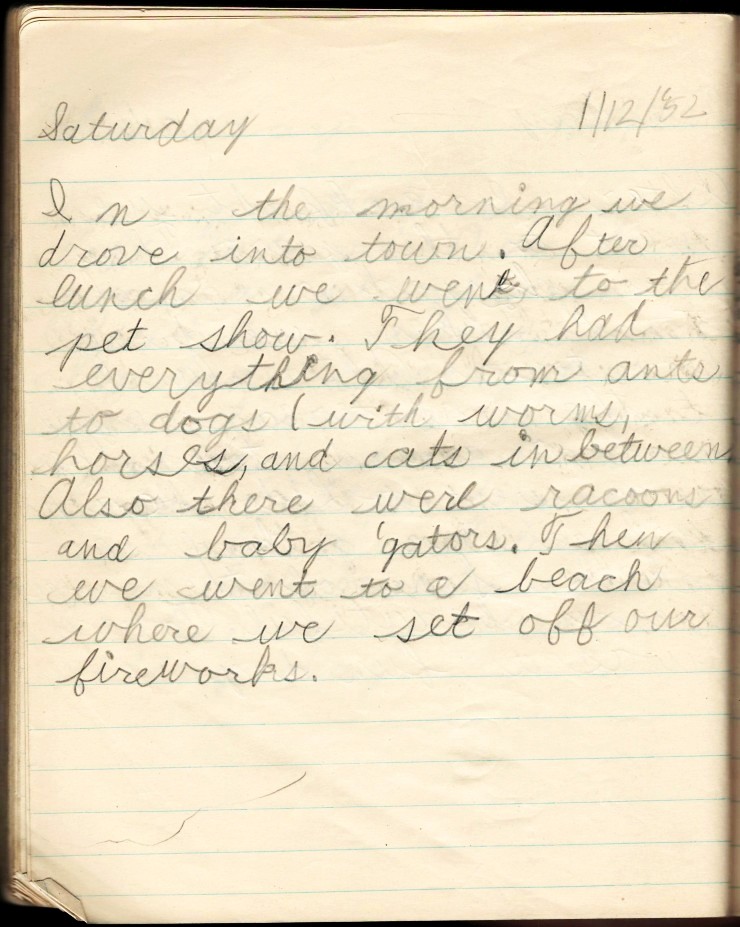 Saturday 1/12/52
In the morning we
drove into town. After
lunch we went to the
pet show. They had
everything from ants
to dogs (with worms,
horses, and cats in between.
Also there were racoons
and baby 'gators. Then
we went to a beach
where we set off our
fireworks.